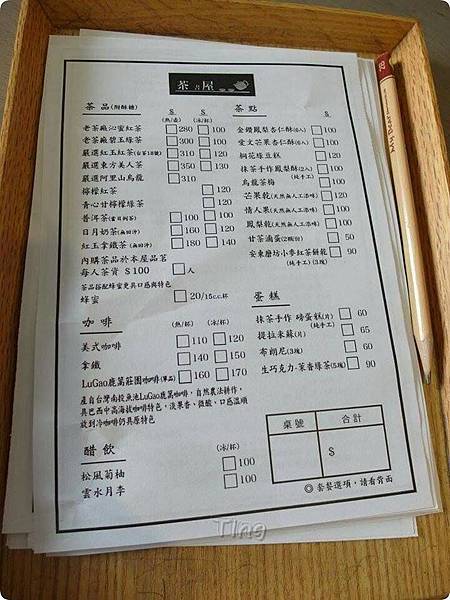 茶 屋
茶品(附酥糖) $(熱/壺) $(冰/杯)
老茶廠沁蜜紅茶 □280 □100
老茶廠碧玉綠茶 □300 □100
嚴選紅玉紅茶(台茶18號) □310 □120
嚴選東方美人茶 □350 □130
嚴選阿里山烏龍 □310
檸檬紅茶 □120
青心甘檸檬綠茶 □120
普洱茶 □100 □100
日月奶茶 □160 □120
紅玉拿鐵茶 □180 □140
內購茶品於本屋品茗
每人茶資 $100 □人
茶品搭配蜂蜜更具口感與特色
蜂蜜 □20/15c.c.杯
咖啡 (熱/杯) (冰/杯)
美式咖啡 □110 □120
拿鐵 □140 □150
LuGao鹿篙莊園咖啡(單品) □160 □170
產自台灣南投魚池LuGao鹿篙咖啡，自然農法耕作，
具巴西中高海拔咖啡特色，淡果香、微酸、口感溫順
放到冷咖啡仍具原特色
醋飲 (冰/杯)
松風菊柚 □100
雲水月李 □100
茶點 $
金鑽鳳梨杏仁酥(6入) □100
愛文芒果杏仁酥(6入) □100
桐花綠豆糕 □120
抹茶手作鳳梨酥(2入) □100
(純手工)
烏龍茶梅 □100
芒果乾(天然無人工添味) □100
情人果(天然無人工添味) □100
鳳梨乾(天然無人工添味) □100
甘茶滷蛋(2顆份) □50
安東磨坊小麥紅茶餅乾 □90
(純手工)(3塊)
蛋糕
抹茶手作 磅蛋糕(片) □60
(純手工)
提拉米蘇(片) □65
布朗尼(3塊) □60
生巧克力-茉香綠茶(5塊) □90
桌號 合計
$
◎ 套餐選項，請看背面
Ting